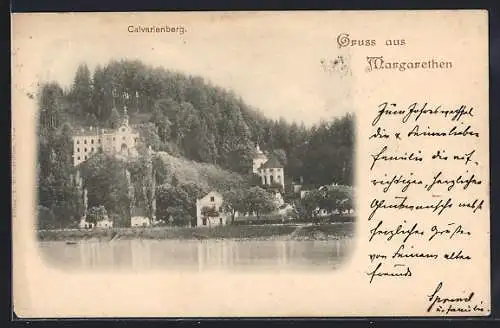 Calvarienberg.
Gruss aus
Margarethen
Zum Jahreswechsel
die
Familie die auf-
richtigsten, herzlichen
Glückwünsche nebst
herzlicher Grüße
von Seinem alten
Freunde